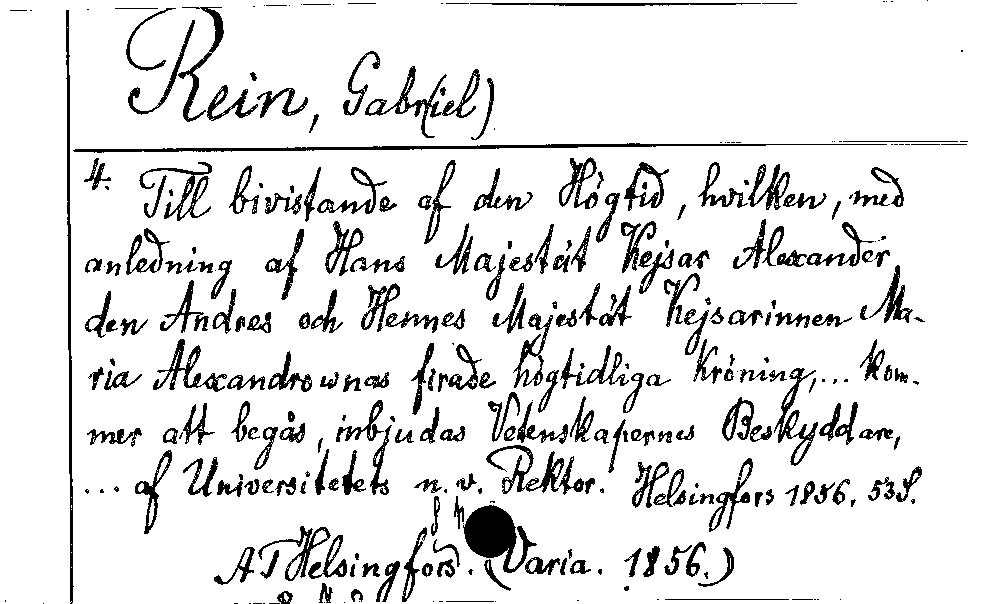 Rein, Gabr(iel)
4. Till bivistande af den Högtid, hvilken, med
anledning af Hans Majestät Kejsar Alexander
den Andres och Hennes Majestät Kejsarinnen Ma-
ria Alexandrownas firade högtidliga Kröning,... kom-
mer att begås, inbjudas Vetenskapernes Beskyddare,
... af Universitetets n. v. Rektor. Helsingfors 1856. 53 S.
AT Helsingfors. (Varia. 1856.)